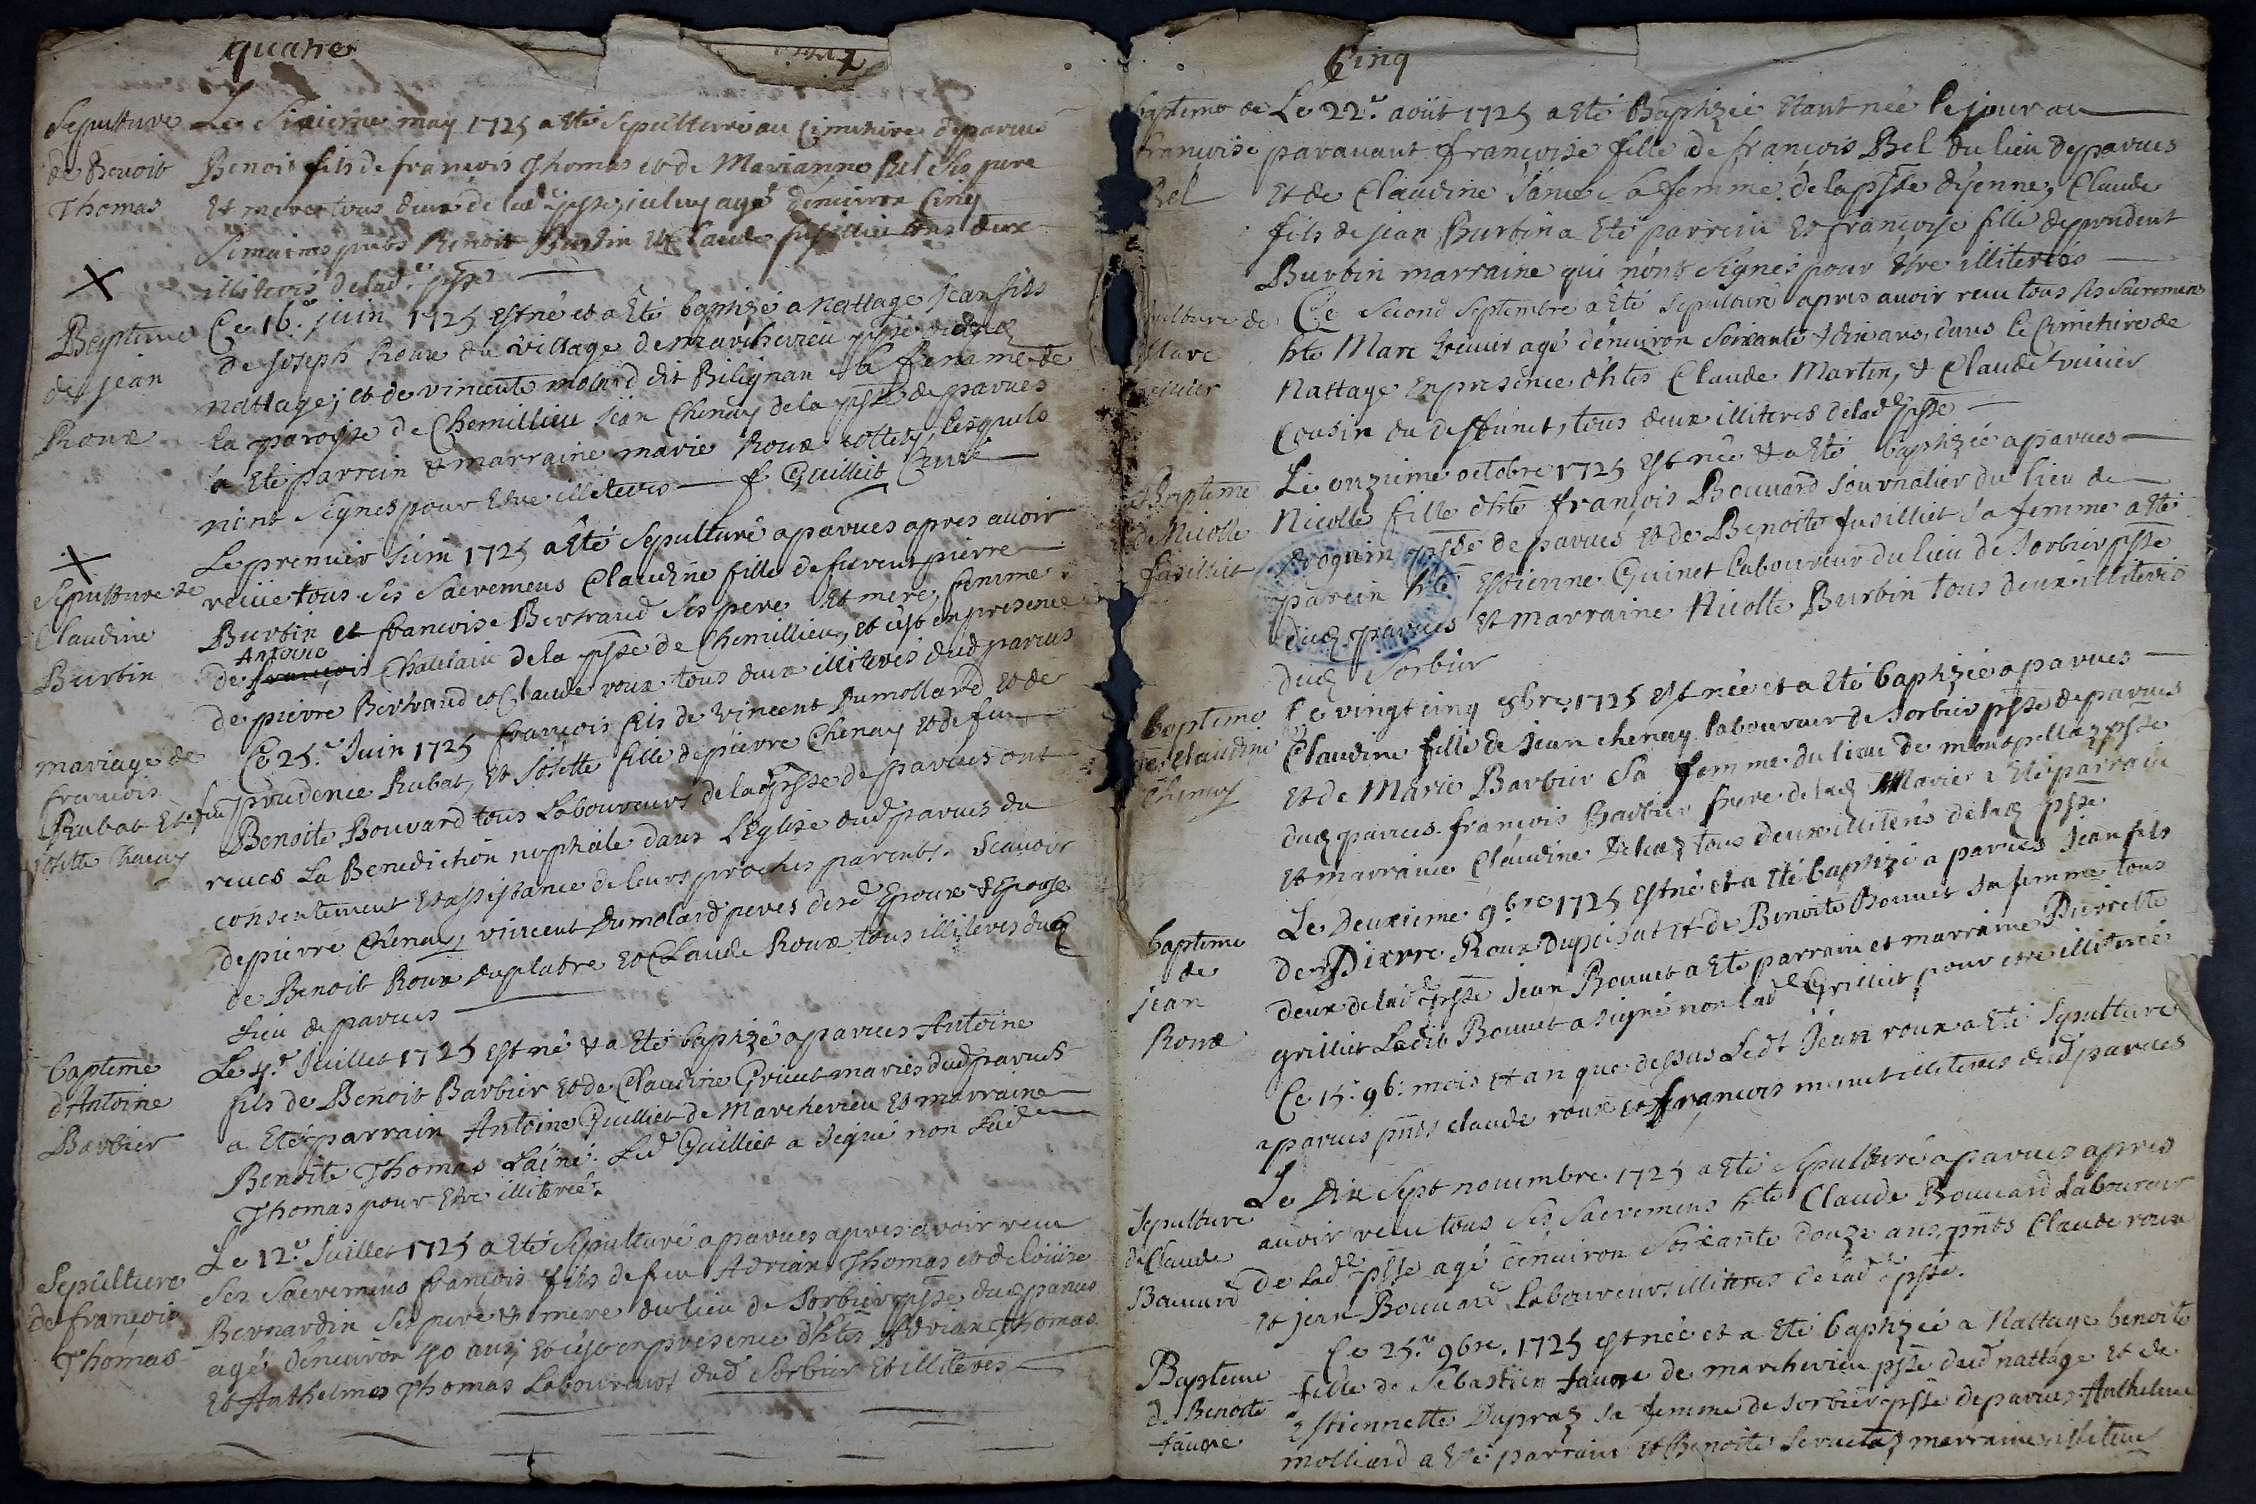 quatre
Sepulture
de Benoit
Thomas
Le Sixieme may 1725 a eté Sepulturé au cimetiere de parves
Benoit fils de françois Thomas et de Marianne Bel ses pere
et mere tous deux de lad.e psse, iceluy agé d'environ cinq
Semaines pnts Benoit Burbin et Claude fusillier tous deux
illiterés de lad.e psse
Bapteme
de jean
Roux
Ce 16.e juin 1725 est né et a eté baptizé a Nattage jean fils
de joseph Roux du village de marchevieu psse dud
nattage; et de vincente molard dit Bilignan sa femme de
la paroisse de Chemillieu jean Chenay de la psse de parves
a eté parrein et marraine marie Roux lesquels
n'ont signes pour etre illiterés f Guilliet Curé
Sepulture de
Claudine
Burbin
Le premier Juin 1725 a eté Sepulturé a parves apres avoir
reçue tous ses Sacremens Claudine fille de furent pierre
Burbin et francoise Bertrand ses pere et mere, femme
Antoine
de françois Chatelain de la psse de Chemillieu, et c'est en presence
de pierre Bertrand et Claude roux tous deux illiterés dud parves
mariage de
francois
Rubat et de
josette Chenay
Ce 25.e Juin 1725 francois fils de vincent Dumollard et de
feu prudence Rubat, et Josette fille de pierre Chenay et de feu
Benoite Bouvard tous Laboureurs de lad psse de parves ont
reçues La Benediction nuptiale dans L'Eglise dud parves du
consentement et assistance de leurs proches parents. Scavoir
de pierre Chenay, vincent Dumolard peres desd Epoux et Epouse
de Benoit Roux du platre et Claude Roux tous illiteres dud
Lieu de parves
bapteme
d'Antoine
Barbier
Le 4.e Juillet 1725 est né et a eté baptizé a parves Antoine
fils de Benoit Barbier et de Claudine Grinet mariés dud parves
a eté parrain Antoine Guilliet de Marchevieu et marraine
Benoite Thomas Lainé. Led Guilliet a signé non Lad
Thomas pour etre illiterée.
Sepulture
de françois
Thomas
Le 12.e Juillet 1725 a eté Sepulturé a parves apres avoir reçu
Ses Sacremens françois fils de feu Adrian Thomas et de loüise
Bernardin Ses pere et mere du lieu de Sorbier psse dud parves
agé d'environ 40 ans, et c'est en presence d'htes Adrian Thomas
et Anthelmes Thomas Laboureurs dud Sorbier et illiterés
Cinq
bapteme de
francoise
Bel
Le 22.e août 1725 a eté Baptizée etant née le jour au
paravant françoise fille de francois Bel du lieu de parves
et de Claudine Jance Sa femme de la psse d'yenne, Claude
fils de jean Burbin a eté parrein et françoise fille de prudent
Burbin marraine qui n'ont signés pour etre illiterés
Sepulture de
Marc
Ce Second Septembre a eté Sepulturé apres avoir reçu tous ses Sacremens
hte Marc agé d'environ Soixante et dix ans, dans le Cimetiere de
Nattage en presence d'htes Claude Martin, et Claude
Cousin du deffunct, tous deux illiteres de lad psse
Bapteme
de Nicolle
fusilliet
Le onzieme octobre 1725 est née et a eté baptizée a parves
Nicolle fille d'hte françois Bouvard journalier du lieu de
psse de parves et de Benoite fusilliet sa femme a eté
parein hte Estienne Guinet Laboureur du lieu de Sorbier psse
dud parves et marraine Nicolle Burbin tous deux illiterés
dud Sorbier
bapteme
de Claudine
Chenay
Le vingt cinq 8bre. 1725 est née et a eté baptizée a parves
Claudine fille de jean chenay laboureur de Sorbier psse de parves
et de Marie Barbier Sa femme du lieu de montpellaz psse
dud parves. françois Barbier frere de lad Marie a eté parrain
et marraine Claudine tous deux illiterés de lad psse
bapteme
de
jean
Roux
Le Deuxieme 9bre 1725 est né et a eté baptizé a parves jean fils
de Pierre Roux et de Benoite Bonnet sa femme tous
deux de lad.e psse jean Bonnet a eté parrain et marraine Pierrette
grilliet Ledit Bonnet a signé non lad Grilliet pour etre illiterée
Ce 15. 9b. mois et an que dessus Ledt Jean roux a eté Sepulturé
a parves pnts claude roux et françois illiteres dud parves
Sepulture
de Claude
Bouvard
Le dix Sept novembre 1725 a eté Sepulturé a parves apres
avoir reçu tous ses Sacremens hte Claude Bouvard Laboureur
de Lad.e psse agé d'environ Soixante douze ans, pnts Claude roux
et jean Bouvard Laboureurs illiterés de lad.e psse.
Bapteme
de Benoite
faure
Ce 25.e 9bre. 1725 est née et a eté baptizée a Nattage benoite
fille de Sebastien faure de marchevieu psse dud nattage et de
Estiennette Dupraz sa femme de Sorbier psse de parves Anthelme
molliard a eté parrain et Benoite marraine illiteres